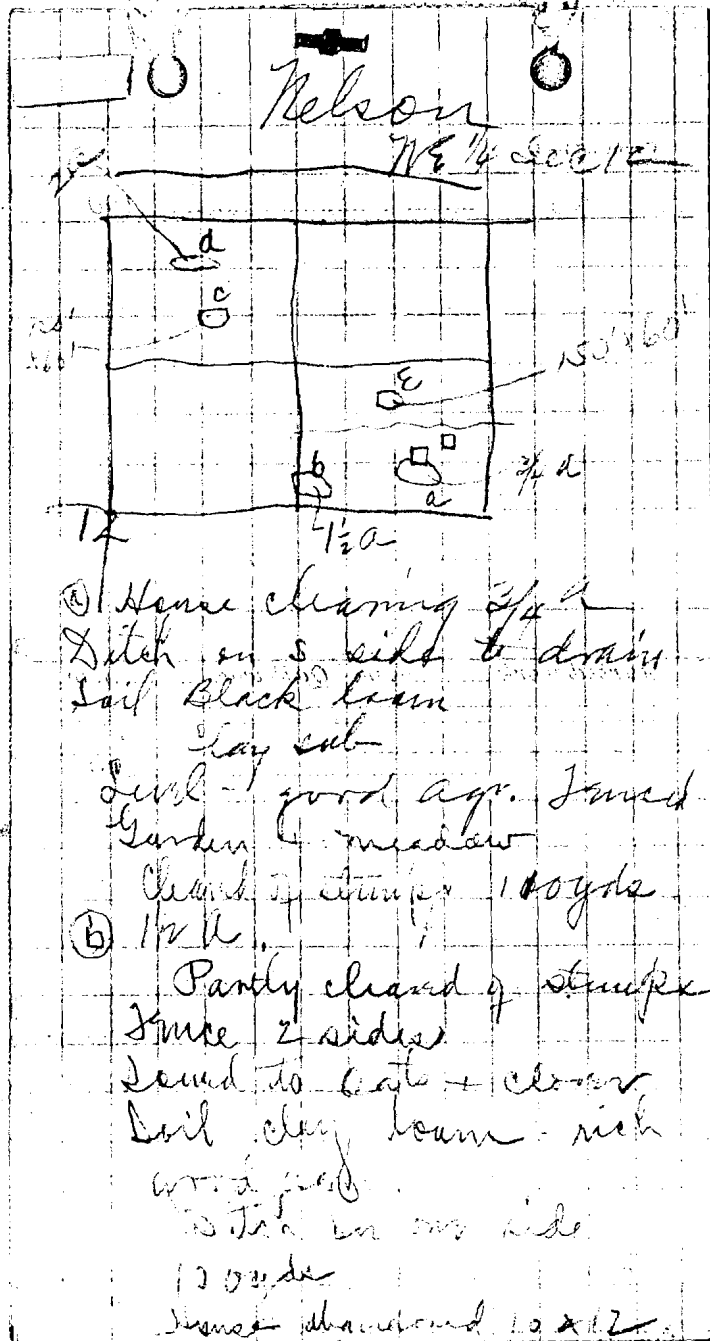 Nelson
NE 1/4 Sec 12
d
c
E
150' x 60'
b
a
3/4 a
12
1 1/2 a
(a) House clearing 3/4 a
Ditch on S side to drain
Soil Black loam
clay sub
Level - good agr. Fenced
Garden + meadow
Cleared of stumps 100yds
(b) 1 1/2 a.
Partly cleared of stumps
Fence 2 sides
Sowed to Oats + clover
Soil clay loam - rich
good
Ditch on one side
120yds
House abandoned 10 x 12